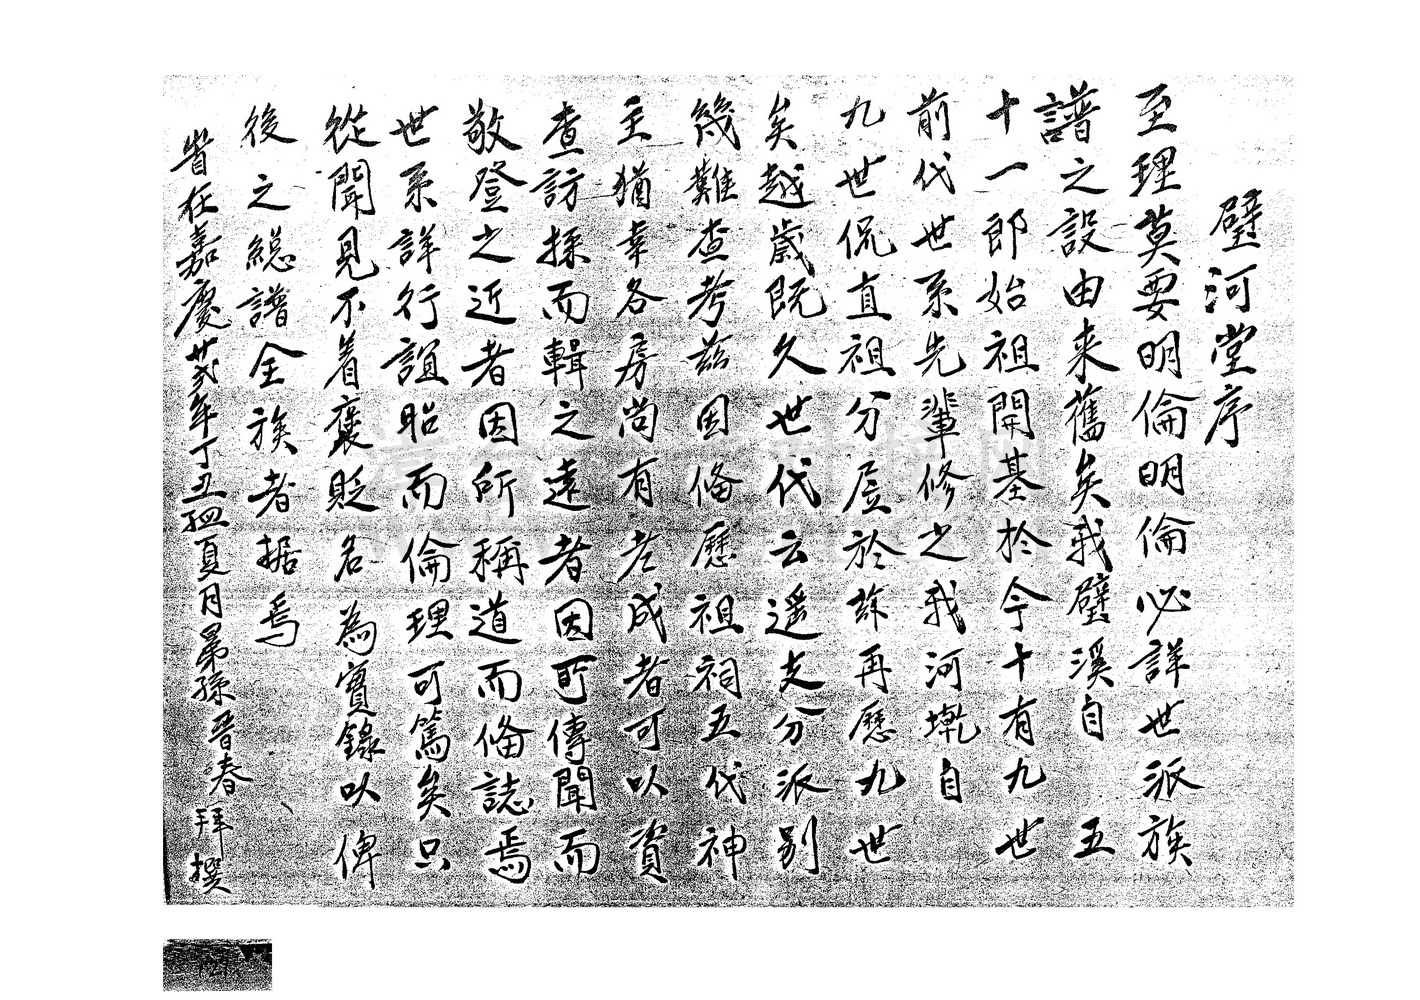 壁河堂序
至理莫要明倫明倫必詳世派族
譜之設由来舊矣我壁溪自五
十一郎始祖開基於今十有九世
前代世系先輩修之我河墘自
九世侃直祖分居於茲再歷九世
矣越歲既久世代云遥支分派别
幾難查考茲因俻歷祖祠五代神
主猶幸各房尚有老成者可以資
查訪採而輯之遠者因所傳聞而
敬登之近者因所稱道而俻誌焉
世系詳行誼昭而倫理可篤矣只
從聞見不着褒貶名為實錄以俾
後之總譜全族者据焉
旹在嘉慶廿弍年丁丑孟夏月晜孫晉春拜撰